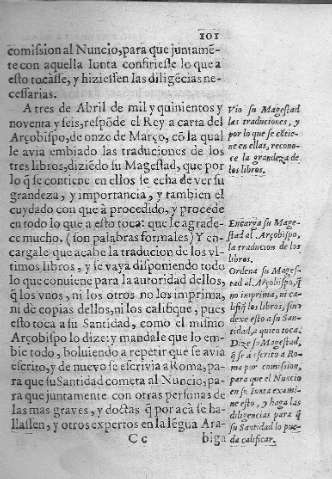 101
comission al Nuncio, para que juntamẽ-
te con aquella Iunta confiriesse lo que a
esto tocasse, y hiziessen las diligẽcias ne-
cessarias.
A tres de Abril de mil y quinientos y
noventa y seis, respõde el Rey a carta del
Arçobispo, de onze de Março, cõ la qual
le avia embiado las traduciones de los
tres libros, diziẽdo su Magestad, que por
lo q̃ se contiene en ellos se echa de ver su
grandeza, y importancia, y tambien el
cuydado con que à procedido, y procede
en todo lo que a esto toca: que le agrade-
ce mucho. (son palabras formales) Y en-
cargale que acabe la traducion de los vl-
timos libros, y se vaya disponiendo todo
lo que conviene para la autoridad dellos,
q̃ los vnos, ni los otros no los imprima,
ni de copias dellos, ni los califique, pues
esto toca a su Santidad, como el mismo
Arçobispo lo dize: y mandale que lo em-
bie todo, bolviendo a repetir que se avia
escrito, y de nuevo se escrivia a Roma, pa-
ra que su Santidad cometa al Nuncio, pa-
ra que juntamente con otras personas de
las mas graves, y doctas q̃ por acà se ha-
llassen, y otros expertos en la lẽgua Ara-
Cc
biga
Vio su Magestad
las traduciones, y
por lo que se cõtie-
ne en ellas, recono-
ce la grandeza de
los libros.
Encarga su Mage-
stad al Arçobispo,
la traducion de los
libros.
Ordena su Mages-
tad al Arçobispo, q̃
ni imprima, ni ca-
lifiq̃ los libros, sino
dexe esto a su San-
tidad, a quien toca.
Dize su Magestad,
q̃ se à escrito a Ro-
ma por comission,
para que el Nuncio
en su Iunta exami-
ne esto, y haga las
diligencias para q̃
su Santidad lo pue-
da calificar.